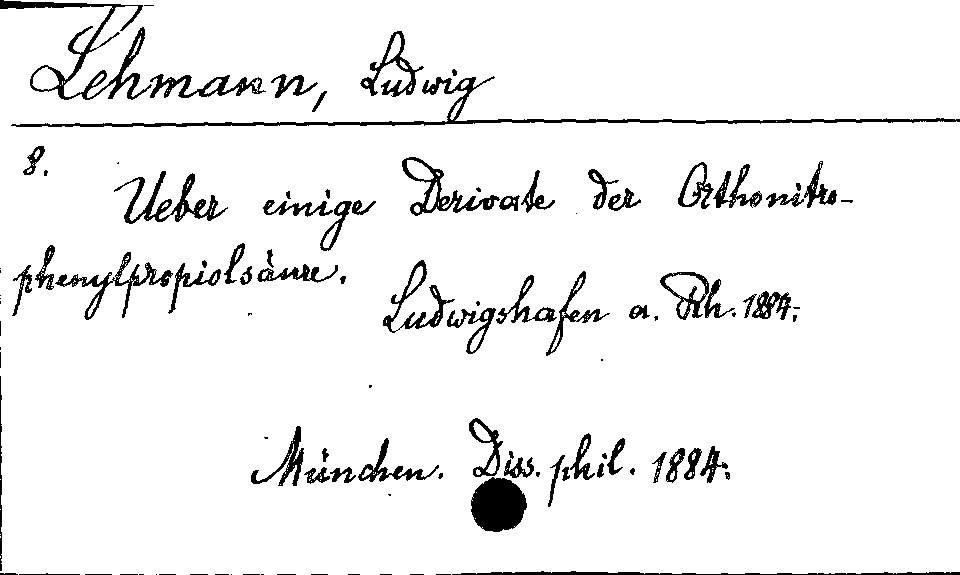 Lehmann, Ludwig
8.
Ueber einige Derivate der Orthonitro-
phenylpropiolsäure.
Ludwigshafen a. Rh. 1884.
München. Diss. phil. 1884.